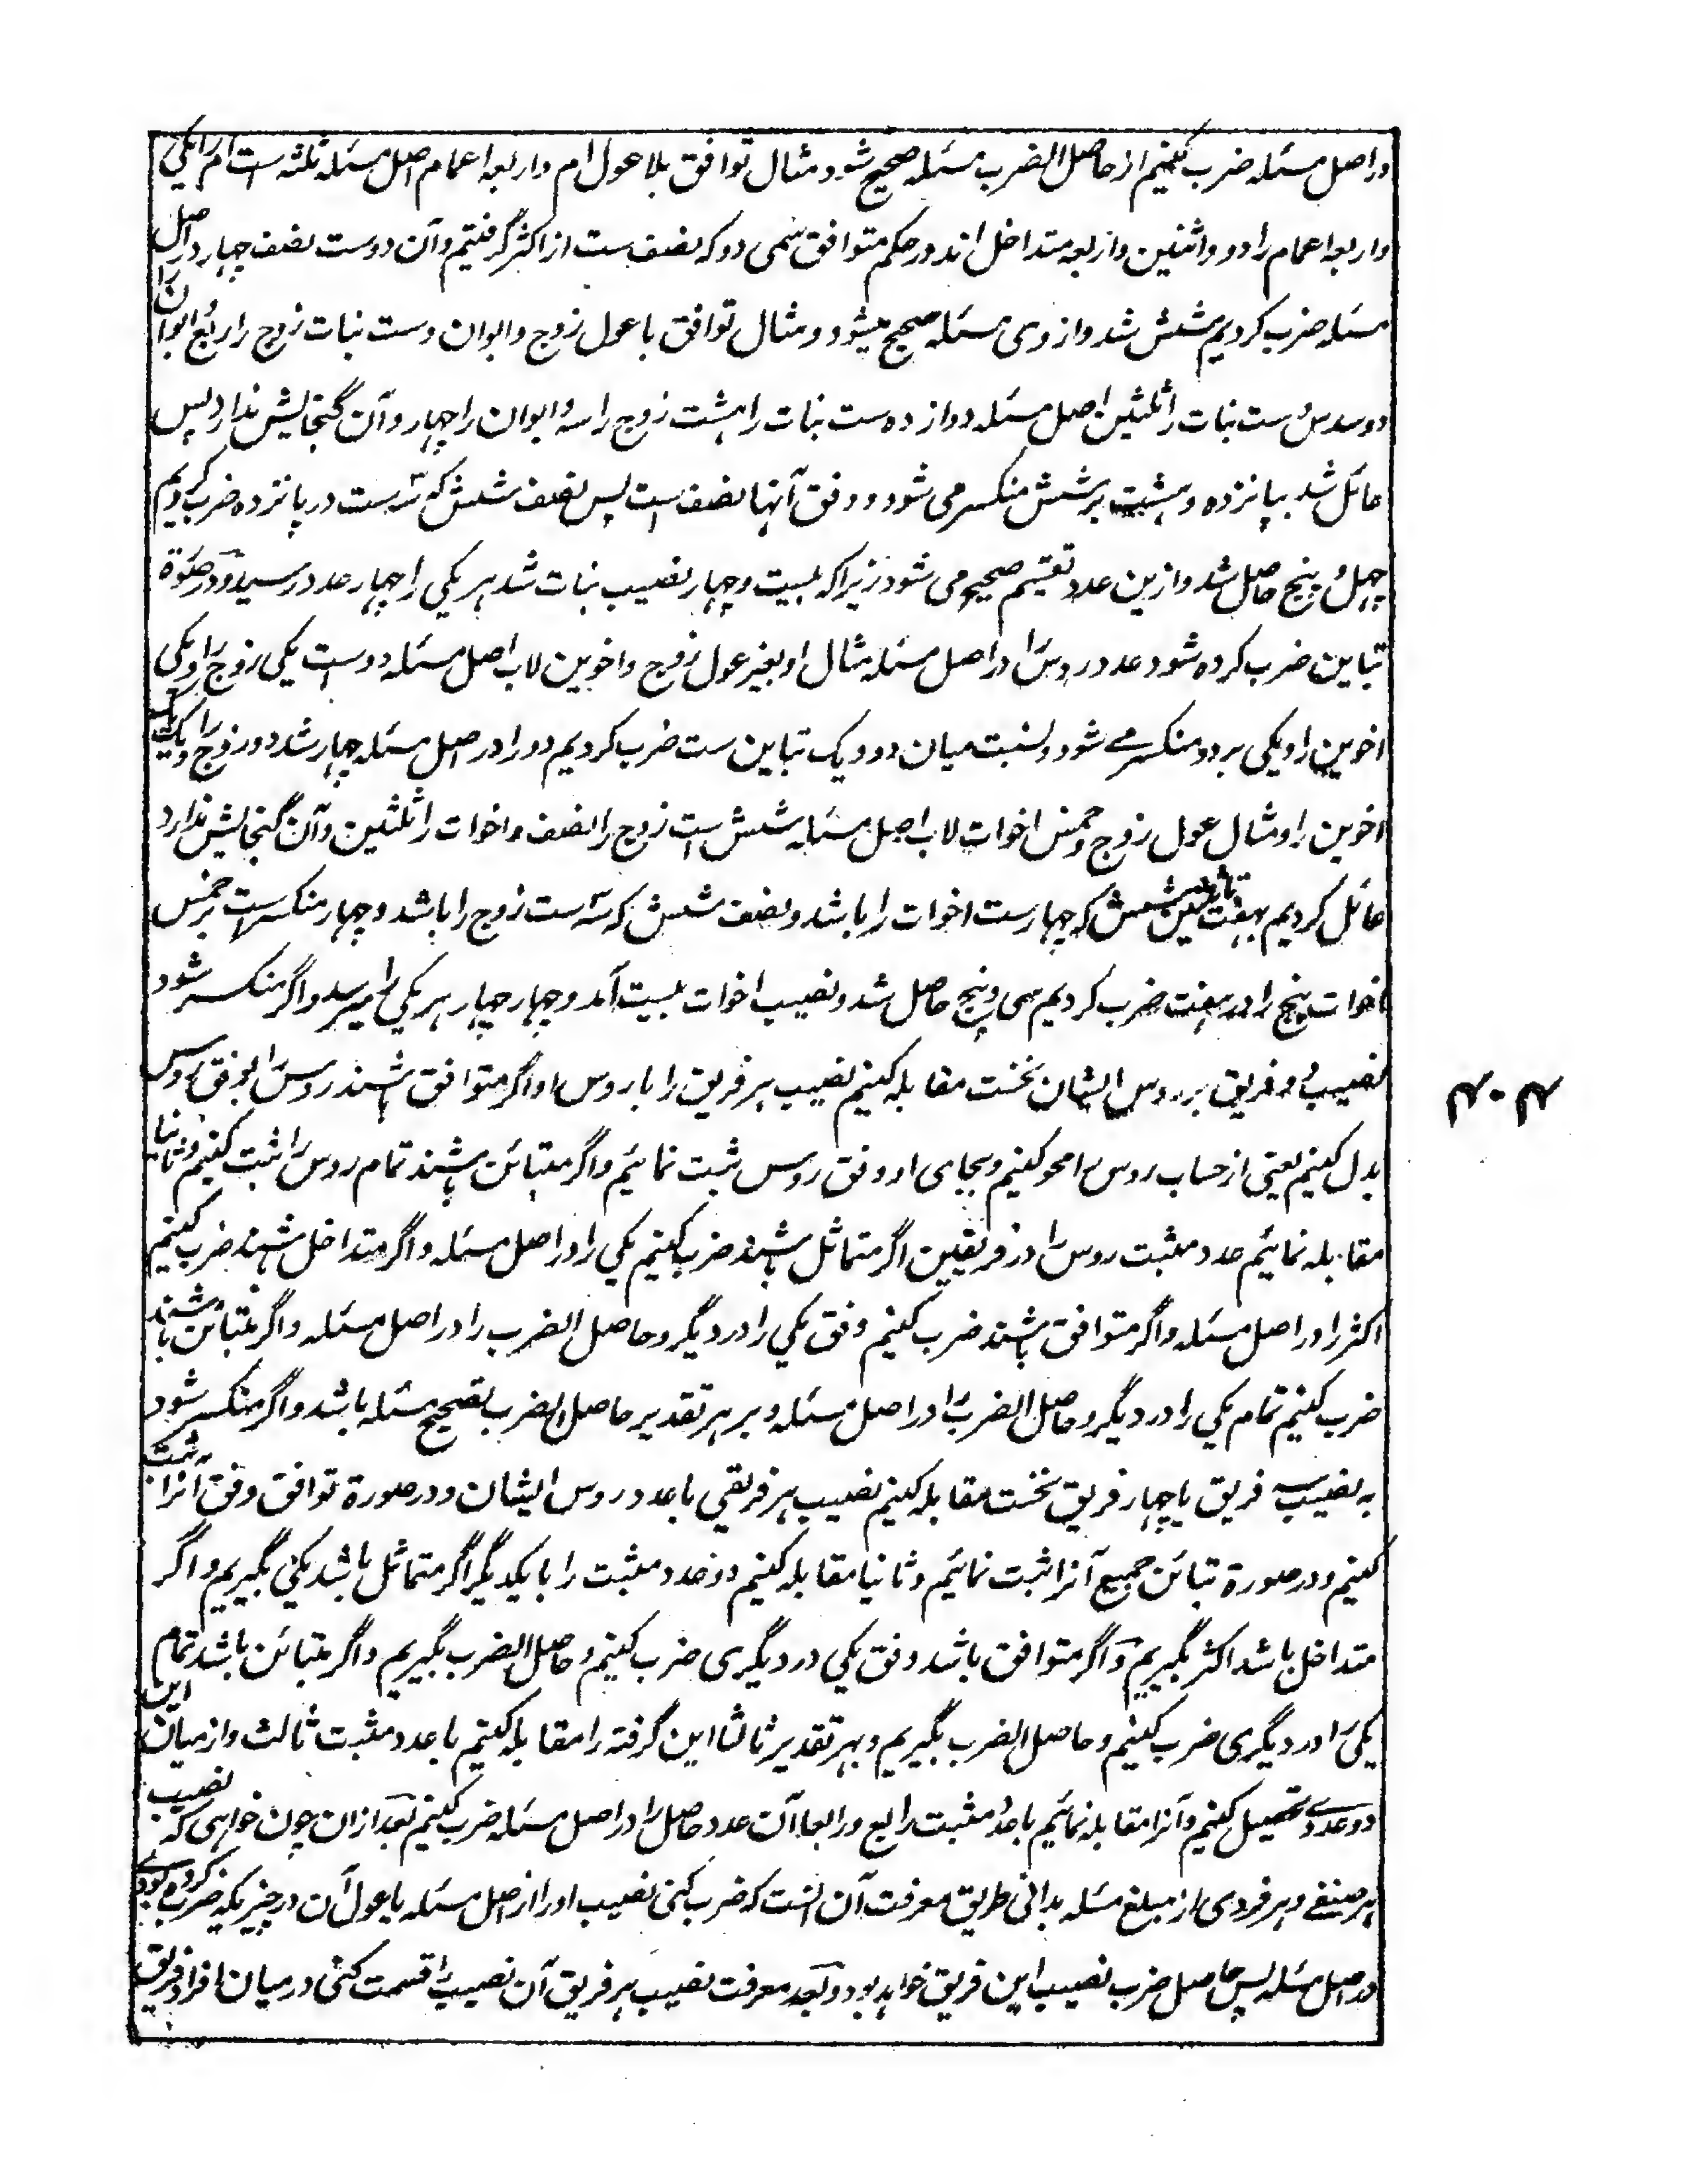 در اصل مسئله ضرب کنیم از حاصل الضرب مسئله صحیح شود مثال توافق بلا عول ام و اربعه اعمام اصل مسئله ثلثه است ام را یکی
و اربعه اعمام را دو و اثنین و اربعه متداخل اند در حکم متوافق سمی دو که نصف ست از اکثر گرفتیم و آن دوست نصف چهار در اصل
مسئله ضرب کردیم شش شد و از وی مسئله صحیح میشود و مثال توافق با عول زوج و ابوان و ست بنات زوج را ربع و ابوان را
دو سدس و ست بنات را ثلثین اصل مسئله دوازده ست بنات را هشت زوج را سه و ابوان را چهار و آن گنجایش ندارد پس
عائل شد بپانزده و هشت بر شش منکسر می شود و وفق آنها نصف است پس نصف شش که سه ست در پانزده ضرب کردیم
چهل و پنج حاصل شد و ازین عدد تقسیم صحیح می شود زیرا که بیست و چهار نصیب بنات شد هر یکی را چهار عدد رسید و در صورة
تباین ضرب کرده شود عدد روس را در اصل مسئله مثال او بغیر عول زوج و اخوین لاب اصل مسئله دوست یکی زوج را و یکی
اخوین را و یکی بر دو منکسر می شود و نسبت میان دو و یک تباین ست ضرب کردیم دو را در اصل مسئله چهار شد دو زوج را و یک یک
اخوین را و مثال عول زوج و خمس اخوات لاب اصل مسئله شش است زوج را نصف و اخوات را ثلثین و آن گنجایش ندارد
عائل کردیم بهفت تا ثلثین شش که چهارست اخوات را باشد و نصف شش که سه ست زوج را باشد و چهار منکسرست بر خمس
اخوات پنج را در هفت ضرب کردیم سی و پنج حاصل شد و نصیب اخوات بیست آمد و چهار چهار هر یکی را میرسد و اگر منکسر شود
نصیب دو فریق بر روس ایشان نخست مقابله کنیم نصیب هر فریق را با روس او اگر متوافق باشند روس را بوفق روس
بدل کنیم یعنی از حساب روس را محو کنیم و بجای او وفق روس ثبت نمائیم و اگر متبائن باشند تمام روس را ثبت کنیم و ثانیا
مقابله نمائیم عدد مثبت روس را در فریقین اگر متماثل باشند ضرب کنیم یکی را در اصل مسئله و اگر متداخل باشند ضرب کنیم
اکثر را در اصل مسئله و اگر متوافق باشند ضرب کنیم وفق یکی را در دیگر و حاصل الضرب را در اصل مسئله و اگر متبائن باشند
ضرب کنیم تمام یکی را در دیگر و حاصل الضرب را در اصل مسئله و بر هر تقدیر حاصل الضرب تصحیح مسئله باشد و اگر منکسر شود
به نصیب سه فریق یا چهار فریق نخست مقابله کنیم نصیب هر فریقی با عدد روس ایشان و در صورة توافق وفق آنرا ثبت
کنیم و در صورة تبائن جمیع آنرا ثبت نمائیم و ثانیا مقابله کنیم دو عدد مثبت را با یکدیگر اگر متماثل باشد یکی بگیریم و اگر
متداخل باشد اکثر بگیریم و اگر متوافق باشد وفق یکی در دیگری ضرب کنیم و حاصل الضرب بگیریم و اگر متبائن باشد تمام
یکی را در دیگری ضرب کنیم و حاصل الضرب بگیریم و بهر تقدیر ثالثا این گرفته را مقابله کنیم با عدد مثبت ثالث و از میان این
دو عددی تحصیل کنیم و آنرا مقابله نمائیم با عدد مثبت رابع و رابعا آن عدد حاصل را در اصل مسئله ضرب کنیم بعد ازان چون خواهی که نصیب
هر صنفے و هر فردی از مبلغ مسئله بدانی طریق معرفت آن انست که ضرب کنی نصیب او را از اصل مسئله یا عول آن در چیزیکه ضرب کرده بودی
در اصل مسئله پس حاصل ضرب نصیب این فریق خواهد بود و بعد معرفت نصیب هر فریق آن نصیب را قسمت کنی در میان افراد فریق